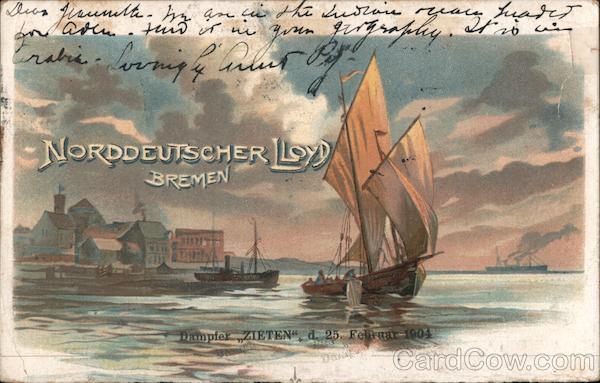 Dear Jeannette - We are in the Indian ocean headed
for Aden - Find it in your geography. It is in
Arabia - Lovingly Aunt
NORDDEUTSCHER LLOYD
BREMEN
Dampfer „ZIETEN“, d. 25. Februar 1904
CardCow.com